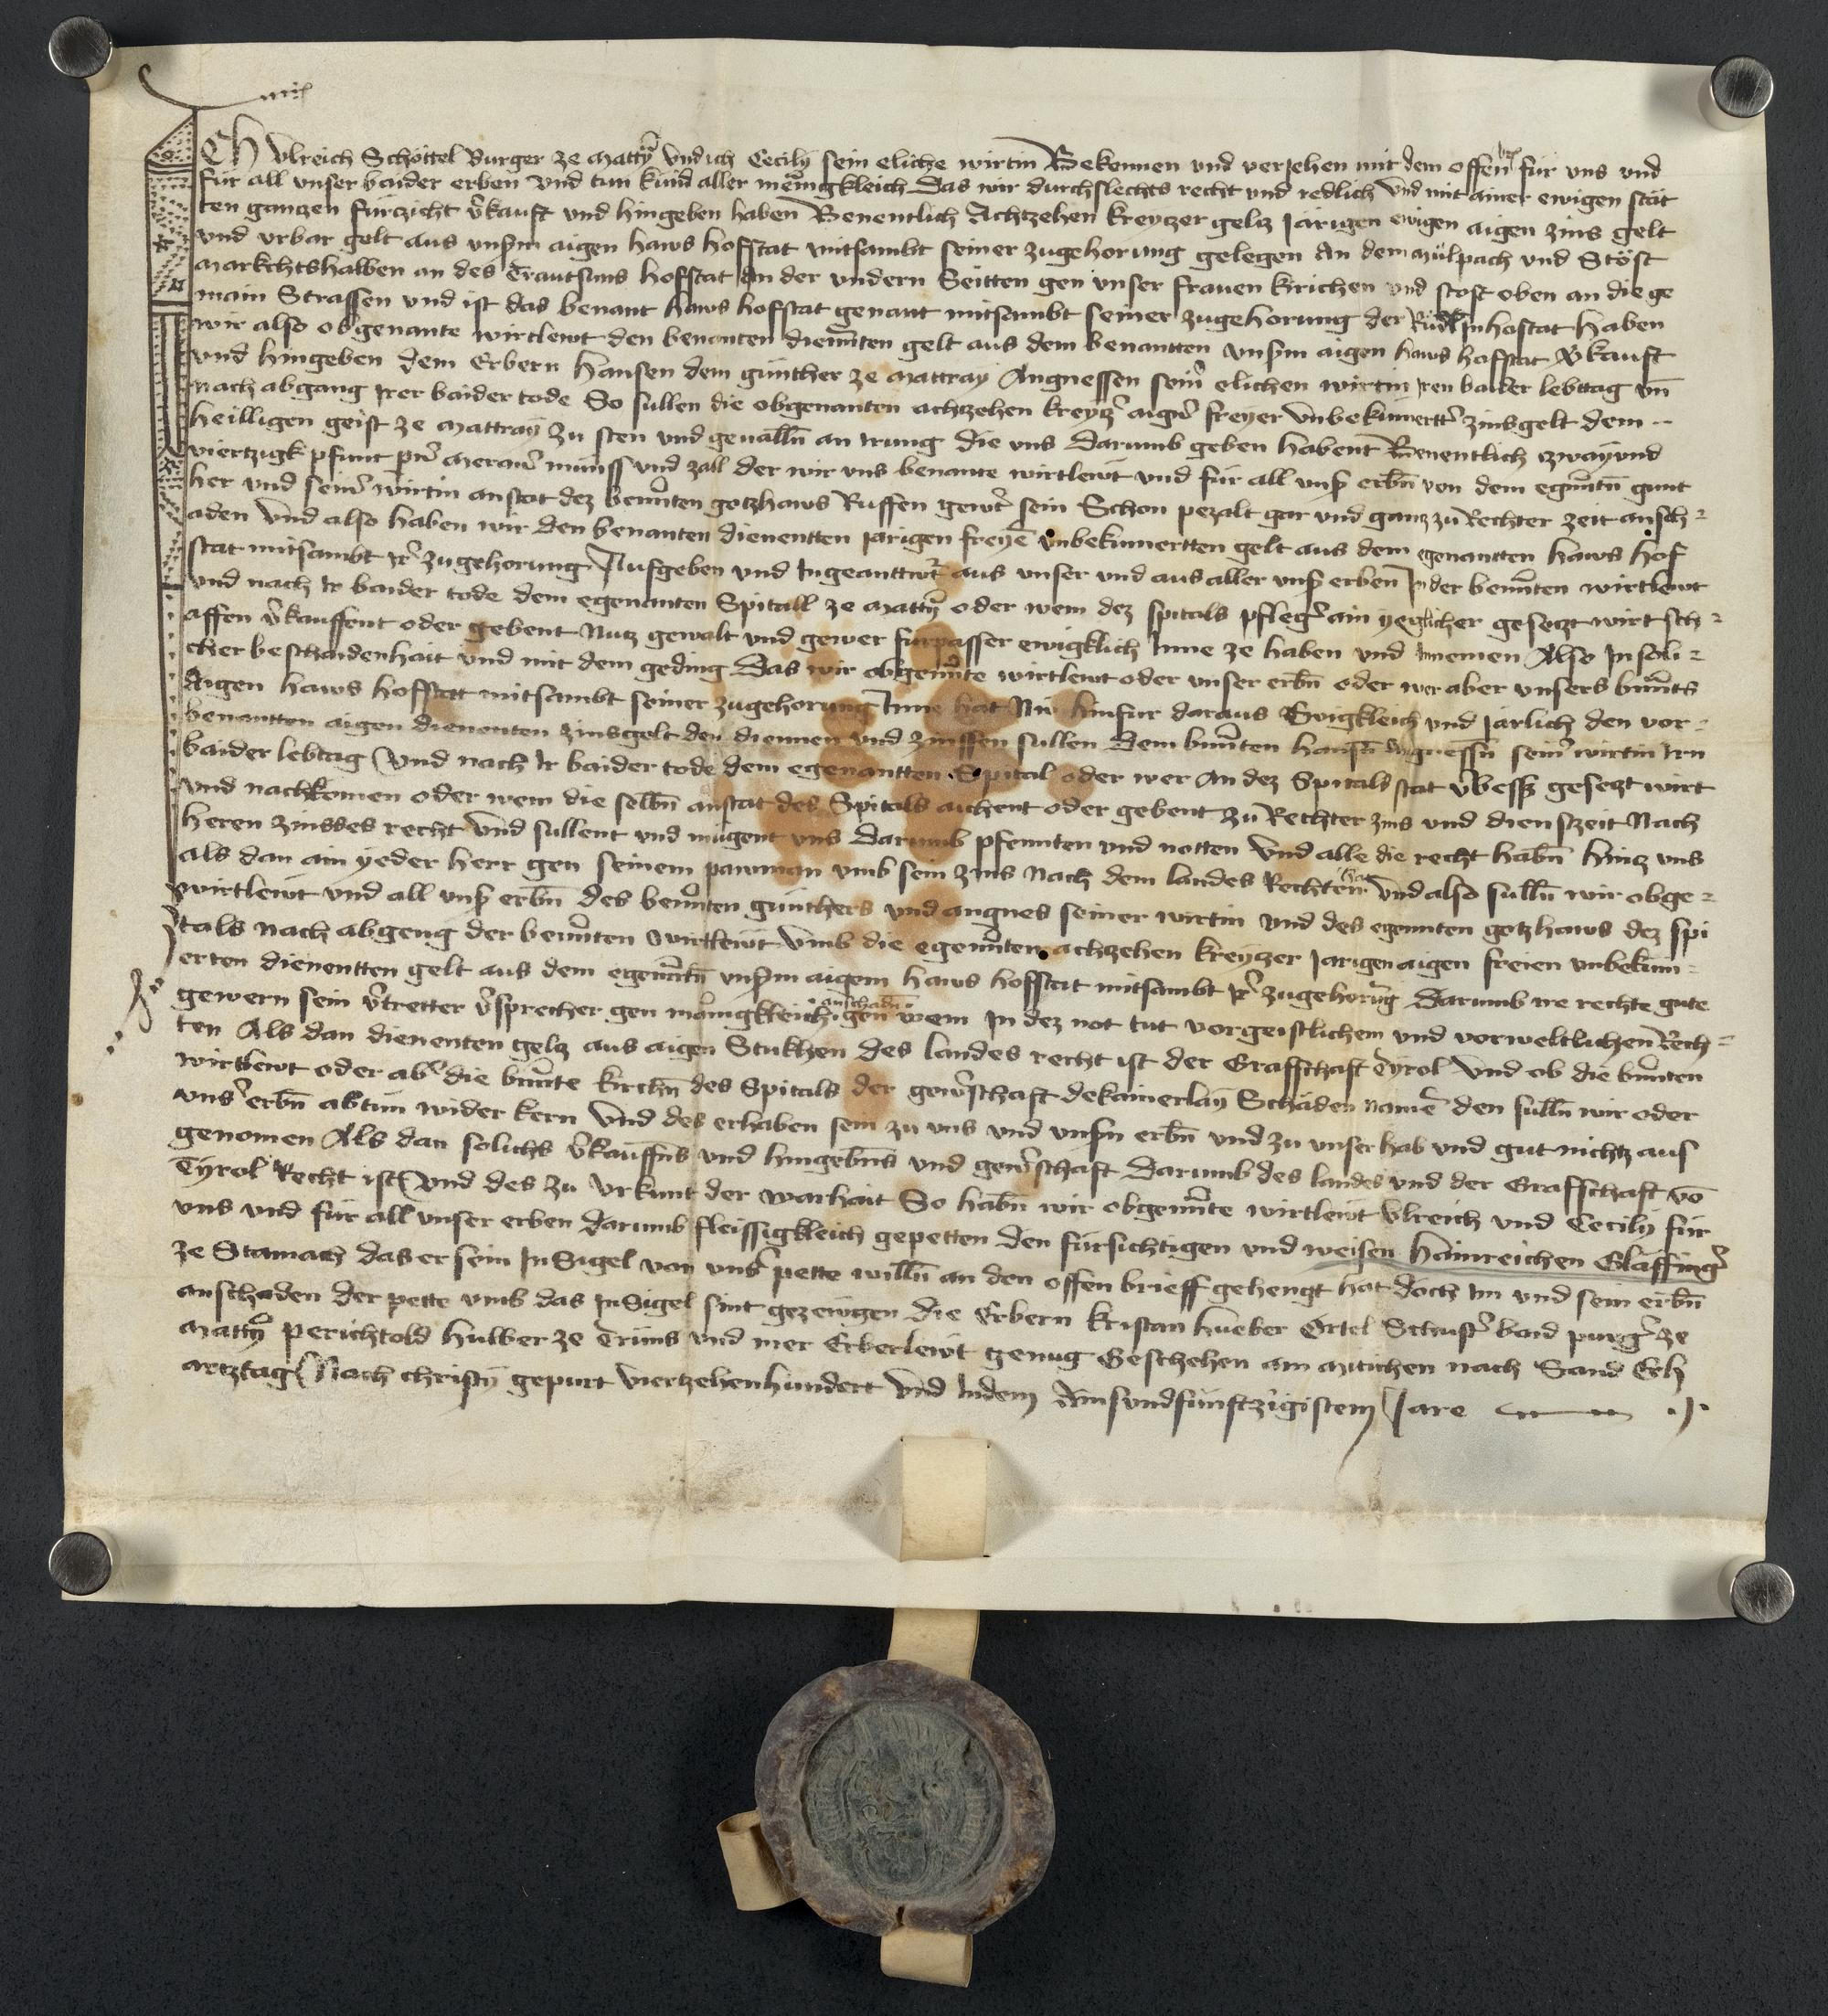 ICh Vlreich Schöttel Burger ze Mattrẏ vnd ich Cecilÿ sein eliche wirtin Bekennen vnd veriehen mit dem offen brief für vns vnd
für all vnser baider erben vnd tun kund aller menigkleich Das wir durchslechts recht vnd redlich vnd mit ainer ewigen stät
ten ganczen fürczicht v̉kauft vnd hingeben haben Benentlich Achtzehen kreyczer geltz Järigen ewigen aigen zins gelt
vnd vrbar gelt aus vnßm aigen haws hofstat mitsambt seiner zugehorung gelegen An dem Mülpach vnd Stöst
Markchtshalben an des Trautsuns hofstat An der vndern Seitten gen vnser frauen kirichen vnd stost oben an die ge
main Strassen vnd ist das benant haws hofstat genant mitsambt seiner zugehorung der hofstat Haben
wir also obgenante wirtlewt den benanten dienenten gelt aus dem benantten vnßm aigen haws hofstat v̉kauft
vnd hingeben dem Erbern Hansen dem günther ze Mattray Angnessen sein̉ elichen wirtin iren baider lebttag vn̄
nach abgang irer baider tode So sullen die obgenanten achtzehen kreytz̉ aign̉ freyer vnbekümertt̉ zinsgelt dem
heilligen geist ze Mattraÿ zu sten vnd geuall̄n an irrung die vns darumb geben habent Benentlich zwayvnd
viertzugk pfunt pn̉ Meran̉ müniss vnd zall der wir vns benante wirtlewt vnd für all vnß erb̄n von dem egn̄ut̄n gunt
her vnd sein̉ wirtin anstat dez ben̄nten gotzhaws Ruffen gewt̉ sein Schon pezalt gar vnd gancz zu Rechter zeit ansch-
aden Vnd also haben wir den benanten dienentten järigen freyē vnbekumertten gelt aus dem egenantten haws hof
stat mitsambt ir̉ zugehorung Aufgeben vnd Ingeanttwt̉ aus vnser vnd aus aller vnß erben In der ben̄nten wirtlewt
vnd nach Ir baider tode dem egenanten Spitall ze Mattrẏ oder wem dez spitals pfleg̉ ain yeglicher gesetzt wirt sch-
affen v̉kauffent oder gebent Nutz gewalt vnd gewer furpasser ewigklich Inne ze haben vnd Innemen Also In soli-
cher beschaidenhait vnd mit dem geding Das wir obgen̄nte wirtlewt oder vnser erb̄n oder wer aber vnsers bn̄nts
Aigen haws hofstatt mitsambt seiner zugehorung Inne hat Nw hinfur daraus Ewigkleich vnd Järlich den vor-
benantten aigen dienenten zinsgelt den diennen vnd zinssen sullen Dem bn̄nten hanßn̄ Angnessn̄ sein̉ wirtin Irn
baider lebtag Vnd nach Ir baider tode dem egenantten Spital oder wer An dez Spitals stat v̉bess gesetzt wirt
vnd nachkomen oder wem die selb̄n anstat des Spitals aichent oder gebent Zu Rechter zins vnd dienstzeit Nach
heren zinsses recht Vnd sullent vnd mügent vns Darumb pfennten vnd notten Vnd alle die recht hab̄n hincz vns
als dan ain yeder herr gen seinem pawman vmb sein zins Nach dem landes Rechten hat Vnd also sull̄n wir obge-
wirtlewt vnd all vnß erb̄n des ben̄nten günthers vnd angnes seiner wirtin vnd des egennten gotzhaws dez spi
tals Nach abgeng der ben̄nten wirtlewt Vmb die egen̄nten achzehen kreyczer Jarigen aigen freien vnbeküm-
erten dienentten gelt aus dem egen̄ut̄n vnßm aigem haws hofstat mitsambt ir̉ zugehorūg Darumb ire rechte gute
gewern sein v̉tretter v̉sprecher gen mönigkleich anschad̄n gen wem In dez not tut vorgeistlichem vnd vorweltlichen Rech-
ten Als dan dienenten geltz aus aigen Stukhen des landes recht ist der Grafschaft Tyrol Vnd ob die bn̄nten
wirtlewt oder ab̉ die bn̄nte kirch̄n des Spitals der gew̉schaft dekainerlay Schäden namē den sull̄n wir oder
vns̉ erb̄n abtün wider kern Vnd des erhaben sein zu vns vnd vnßn erb̄n vnd zu vnser hab vnd gut nichtz aus
genomen Als dan solichs v̉kauffns vnd hingeb̄ns vnd gew̉schaft Darumb des landes vnd der Grafschaft vō
Tyrol Recht ist Vnd des zu Vrkunt der warhait So hab̄n wir obgen̄nte wirtlewt Vlreich vnd Cecilÿ für
vns vnd für all vnser erben darumb fleissigkleich gepetten den fürsichtigen vnd weisen Hainreichen Glaffing̉
ze Stainach das er sein InSigel von vns̉ pette will̄n an den offen brieff gehengt hat doch Im vnd sein erb̄n
anschaden der pette vmb das InSigel sint gezewgen die Erbern kristan hueber Örtel Schust̉ baid purg̉ ze
Mattrẏ perichtold hulber ze Trinns vnd mer Erberlewt genug Geschehen am Mitichen nach Sand Erh
artztag Nach christy gepurt Viertzehenhundert Vnd Indem Ainsvndfunftzigistem Jare